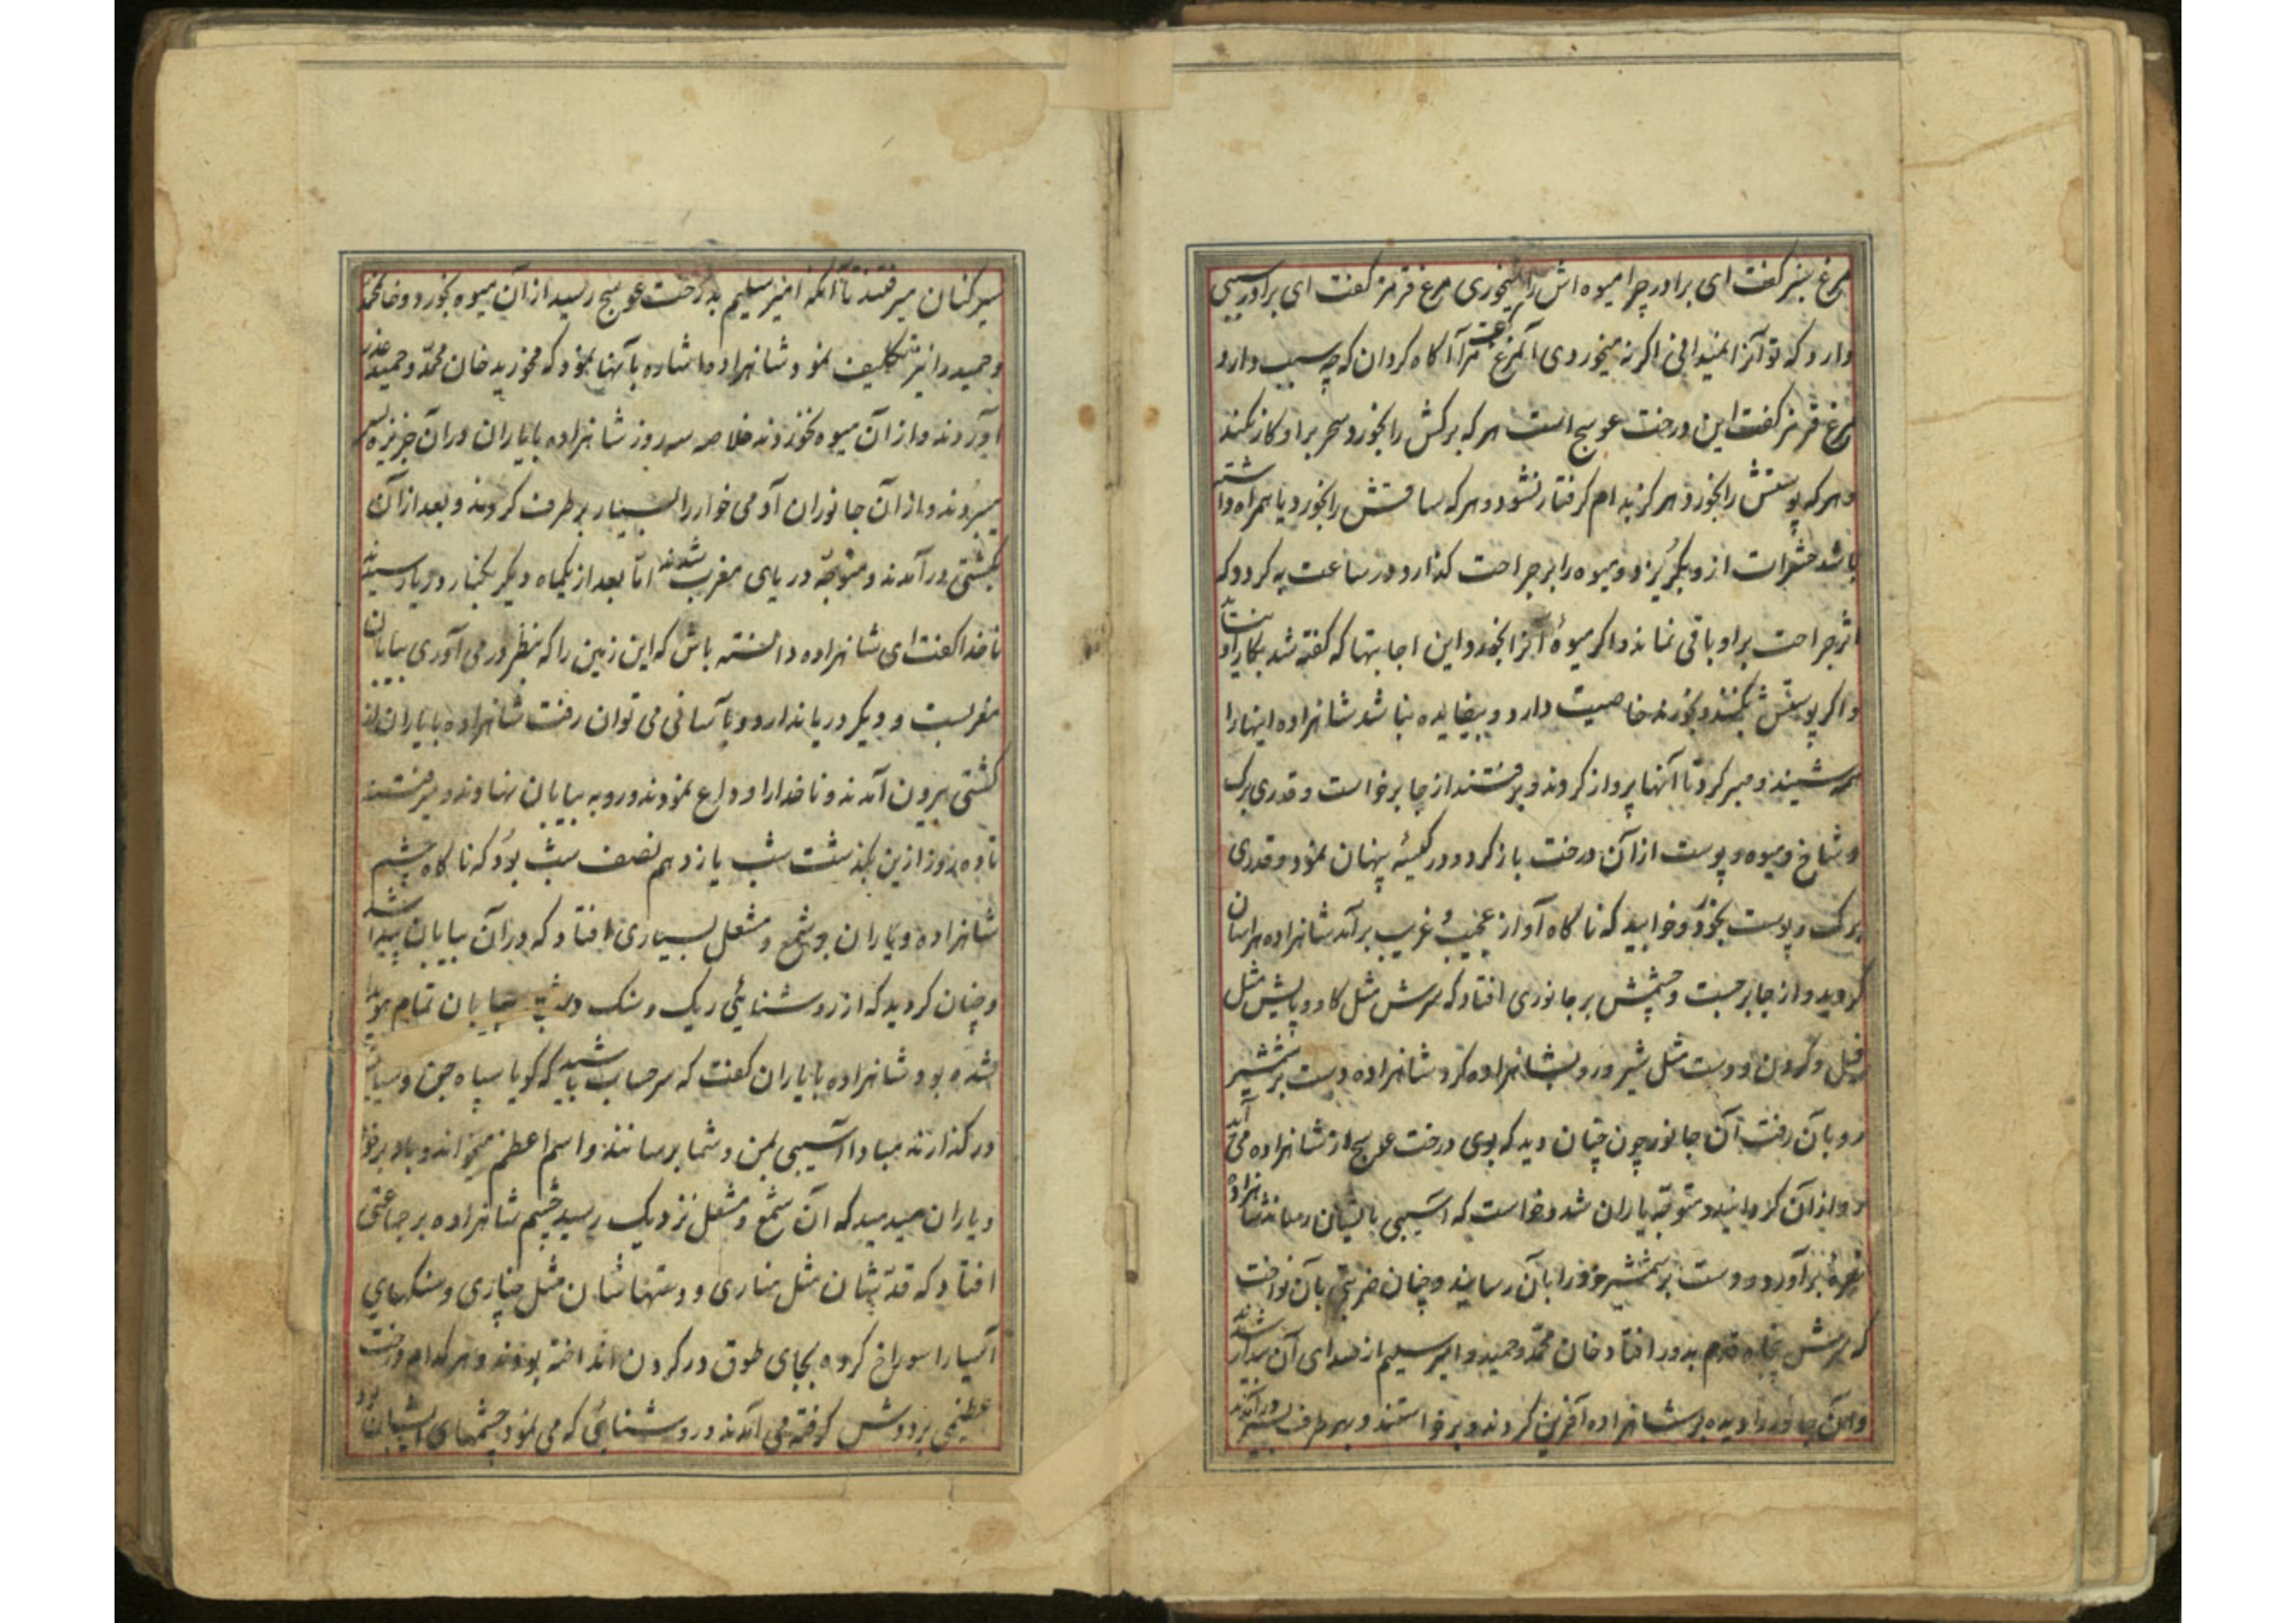 مرغ سبز گفت ای برادر چرا میوه اش را نمیخوری مرغ قرمز گفت ای برادر سببی
دارد که تو آنرا نمیدانی اگر نه میخوردی آنمرغ گفت مرا آگاه گردان که چه سبب دارد
مرغ قرمز گفت این درخت عوسج است هر که برکش را بخورد سحر بر او کار نکند
و هر که پوستش را بخورد هرگز بدام گرفتار نشود و هر که ساقش را بخورد یا همراه داشته
باشد حشرات از وی بگریزد و میوه را بر جراحت گذارد در ساعت به گردد که
اثر جراحت بر او باقی نماند و اگر میوهٔ آنرا بخورد و این اجابتها که گفته شد بکار او
و اگر پوستش بکنند و بخورند خاصیت دارد و بیفایده نباشد شاهزاده اینها را
می شنید و صبر کرد تا آنها پرواز کردند و برفتند از جا برخواست و قدری برک
و شاخ و میوه و پوست از آن درخت باز کرد و در کیسه پنهان نمود و قدری
برک و پوست بخورد و خوابید که ناکاه آواز عجیب و غریب برآمد شاهزاده هراسان
گردید و از جا برجست و چشمش بر جانوری افتاد که سرش مثل کاو و پایش مثل
فیل و گردن و دست مثل شیر و رو بشاهزاده کرد شاهزاده دست بر شمشیر
رو بآن رفت آن جانور چون چنان دید که بوی درخت عوسج از شاهزاده می آید
رو از آن گردانید و متوجه یاران شد و خواست که آسیبی بایشان رساند شاهزاده
نعرهٔ برآورد و دست بر شمشیر خود را بآن رسانید و چنان ضربتی بآن نواخت
که سرش پنجاه قدم بدور افتاد خان محمد و حمید و امیر سلیم از صدای آن بیدار شدند
و آن جانور را دیدند بر شاهزاده آفرین کردند و برخواستند و بهر طرف بسیر درآمدند
سیر کنان میرفتند تا آنکه امیر سلیم بدرخت عوسج رسید از آن میوه بخورد و خان محمد
و حمید را نیز تکلیف نمود شاهزاده اشاره بآنها نمود که مخورید خان محمد و حمید عذر
آوردند و از آن میوه نخوردند خلاصه سه روز شاهزاده با یاران در آن جزیره بسر
میبردند و از آن جانوران آدمی خوار را بسیار بر طرف کردند و بعد از آن
بکشتی درآمدند و متوجه دریای مغرب شدند اما بعد از یکماه دیگر بکنار دریا رسیدند
ناخدا گفت ای شاهزاده دانسته باش که این زمین را که بنظر در می آوری بیابان
مغربست و دیگر دریا ندارد و بآسانی می توان رفت شاهزاده با یاران از
کشتی بیرون آمدند و ناخدا را وداع نمودند و رو به بیابان نهادند و میرفتند
تا ده روز ازین بگذشت شب یازدهم نصف شب بود که ناکاه چشم
شاهزاده و یاران بر شمع و مشعل بسیاری افتاد که در آن بیابان پیدا شد
و چنان گردید که از روشنایی ریک و سنک و بیابان تمام هویدا
شده بود شاهزاده با یاران گفت که سر حساب باشید که گویا سپاه جن و سپاه
در گذارند مبادا آسیبی بمن و شما برسانند و اسم اعظم میخواند و باد بر خود
و یاران میدمید که آن شمع و مشعل نزدیک رسید چشم شاهزاده بر جماعتی
افتاد که قد ایشان مثل مناری و دستهاشان مثل چناری و سنکهای
آسیا را سوراخ کرده بجای طوق در گردن انداخته بودند و هر کدام درخت
عظیمی بر دوش گرفته می آمدند و روشنایی که می نمود چشمهای ایشان بود